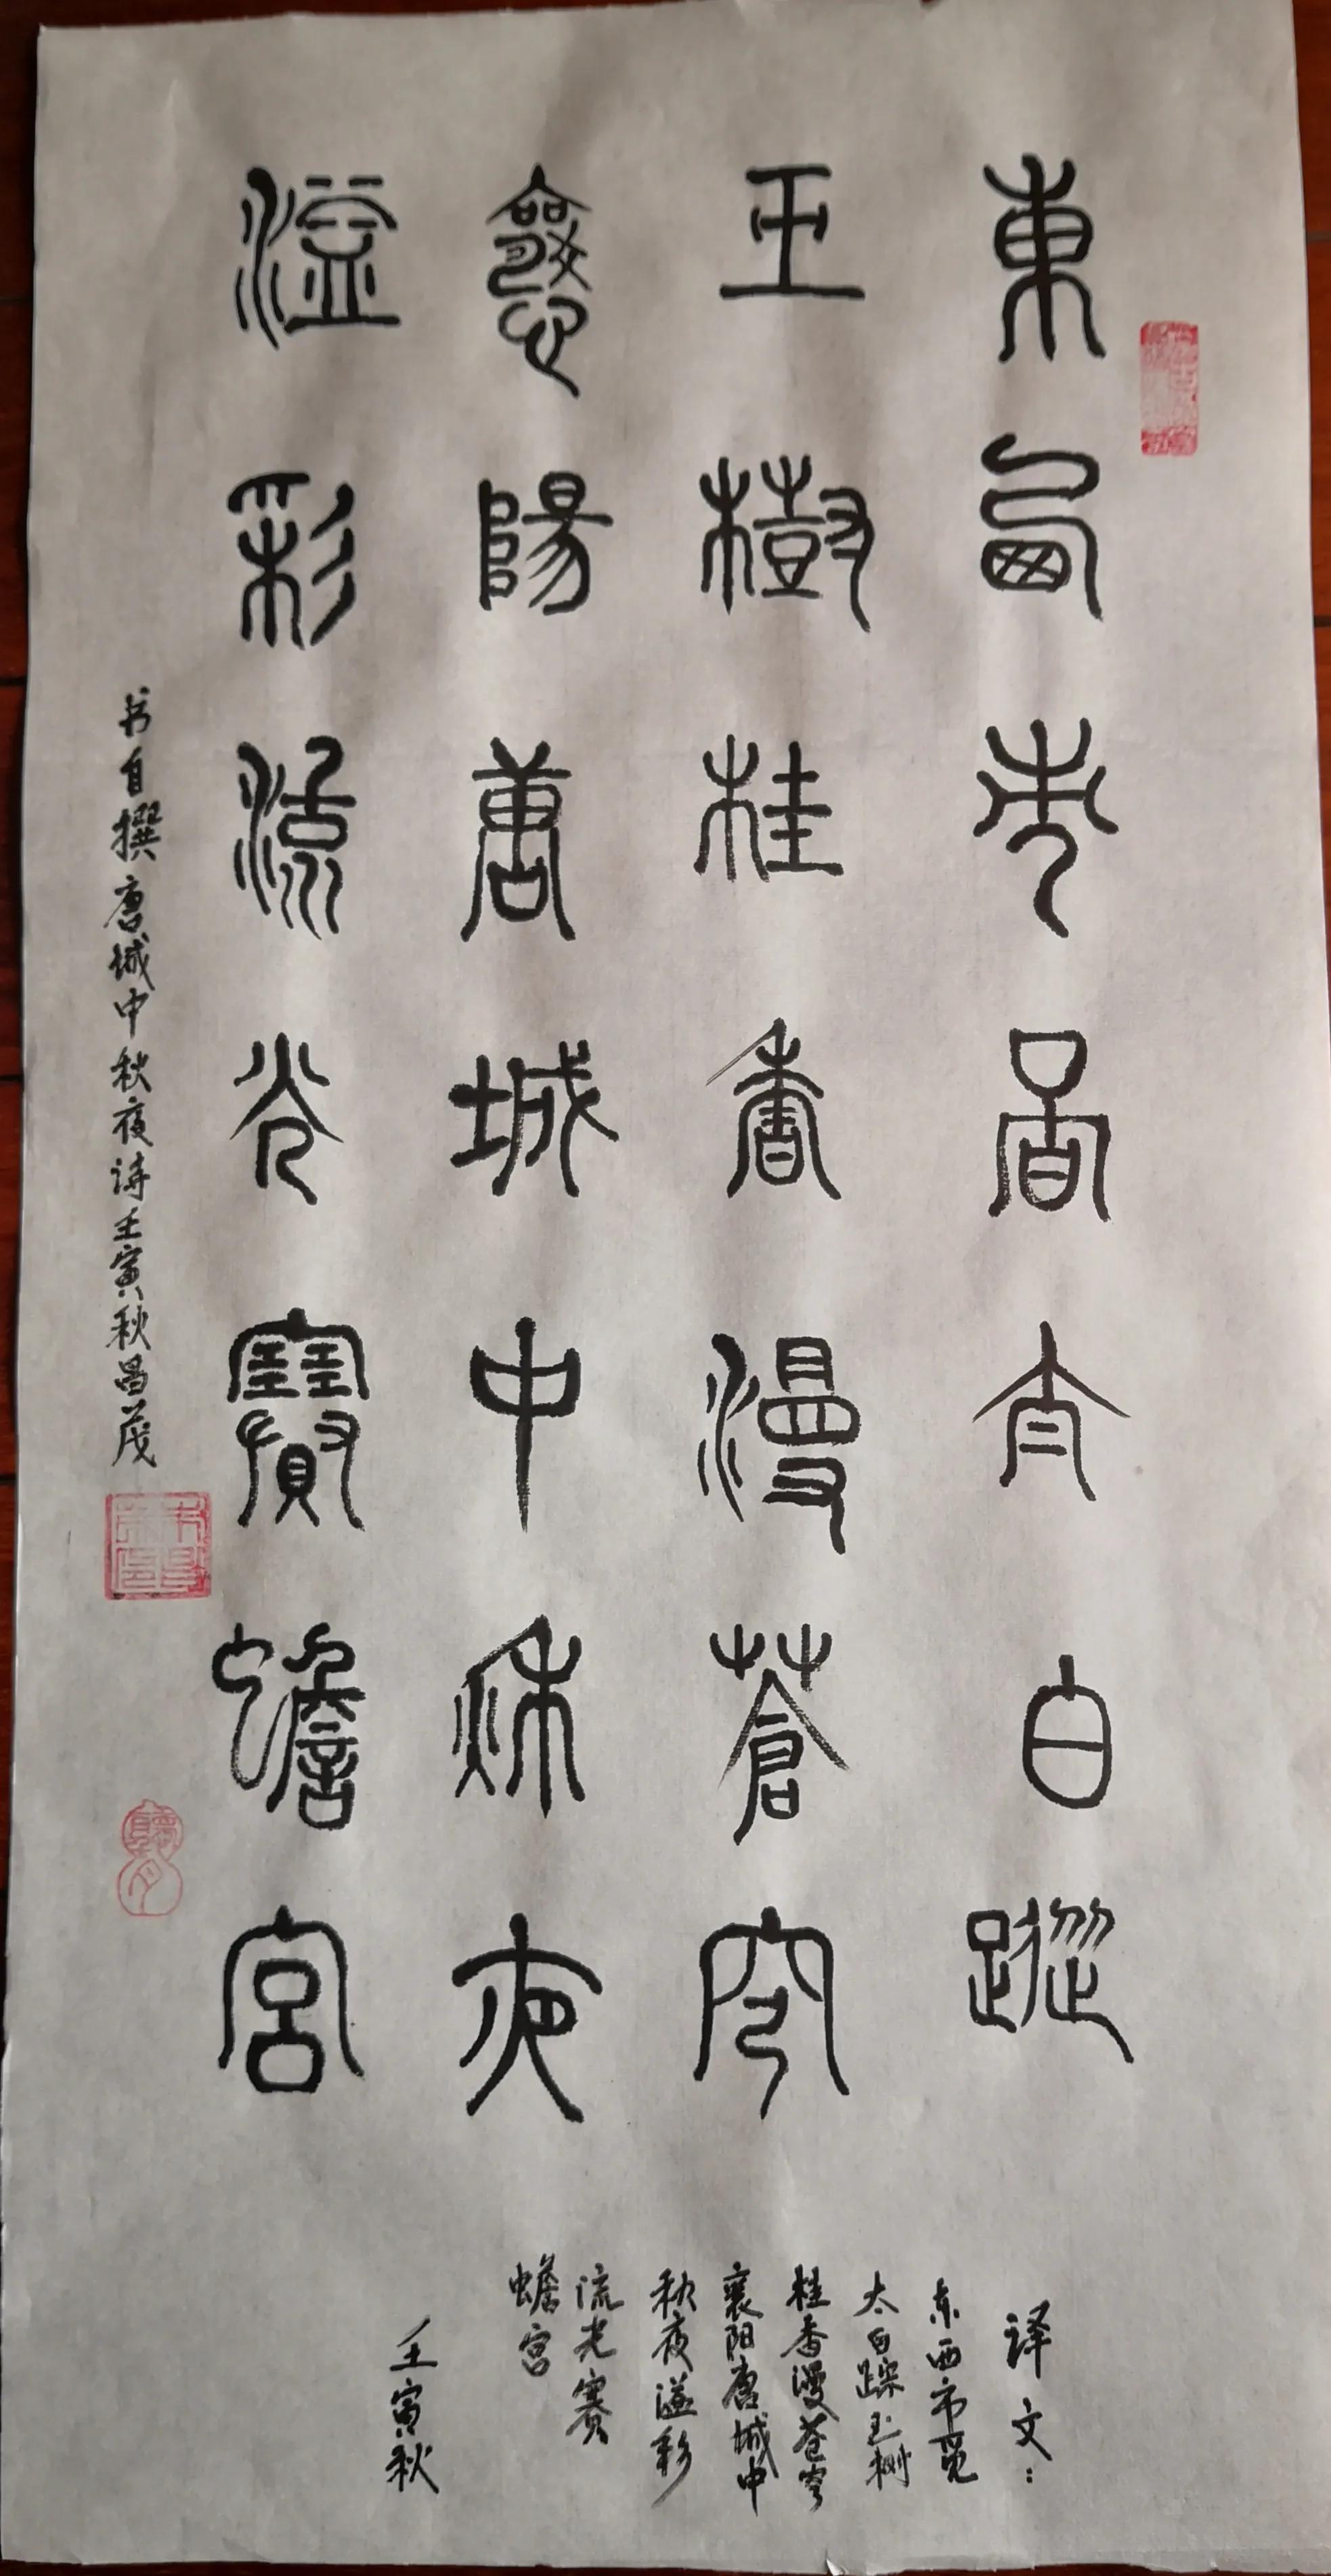 東西市覓太白蹤
玉樹桂香漫蒼穹
襄陽唐城中秋夜
溢彩流光賽蟾宮
书自撰唐城中秋夜诗壬寅秋昌茂
译文：
东西市觅
太白踪玉树
桂香漫苍穹
襄阳唐城中
秋夜溢彩
流光赛
蟾宫
壬寅秋